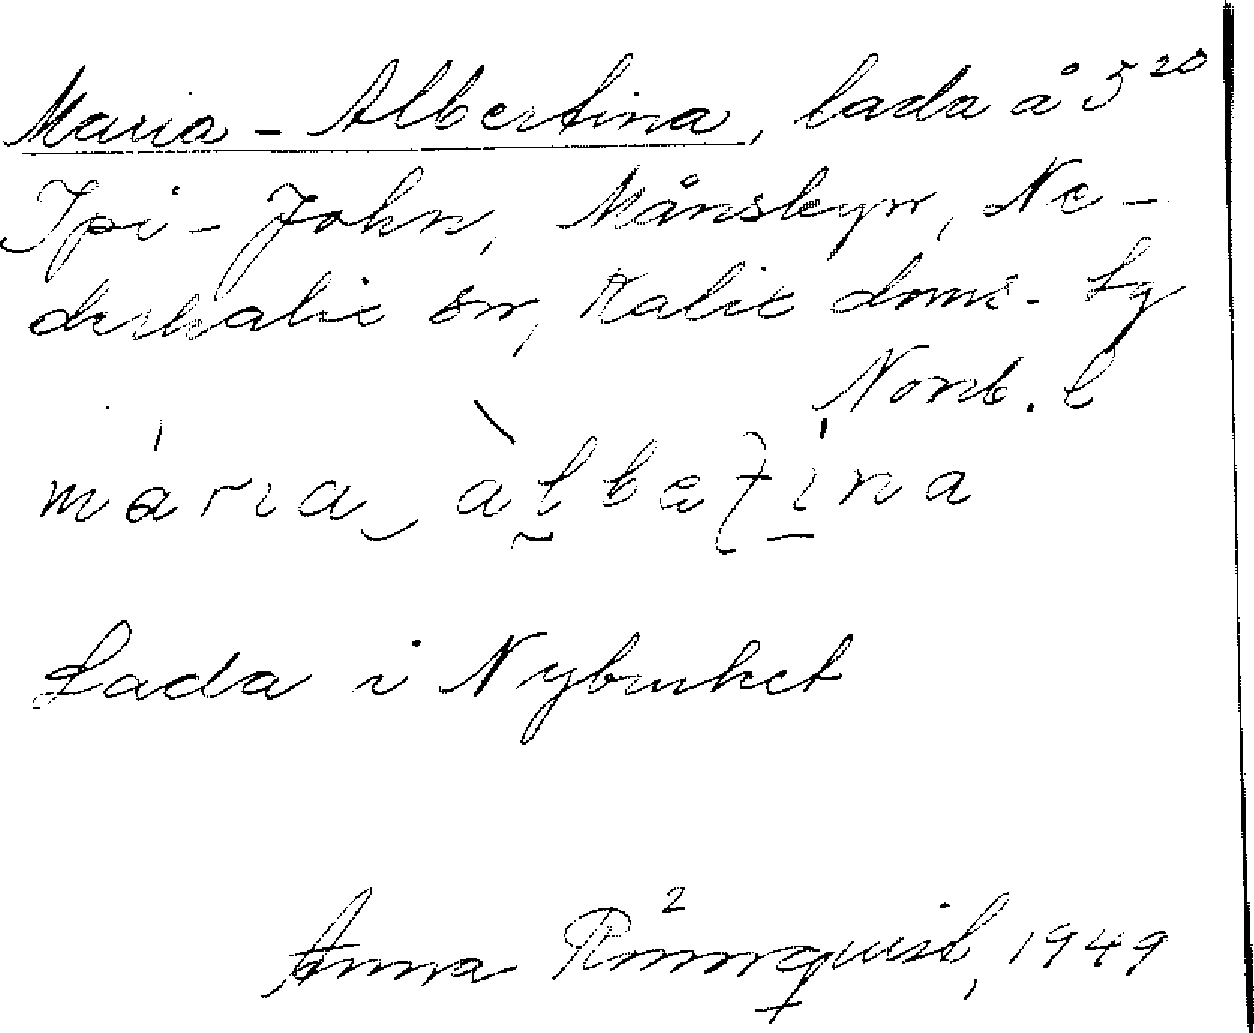 Maria-Albertina, lada å 5²⁰
Ipi-John, Månsbyn, Ne-
derkalix sn, Kalix doms. lg
Norrb. l
mária àlbaṭína
Lada i Nybruket
Anna Rönnquist, 1949